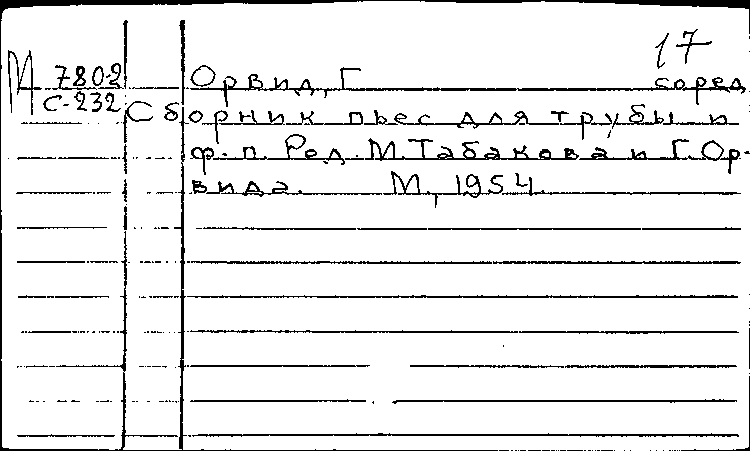 17
М 780.2 Орвид, Г. соред
С-232 Сборник пьес для трубы и
ф.п. Ред. М. Табакова и Г. Ор-
вида. М., 1954.